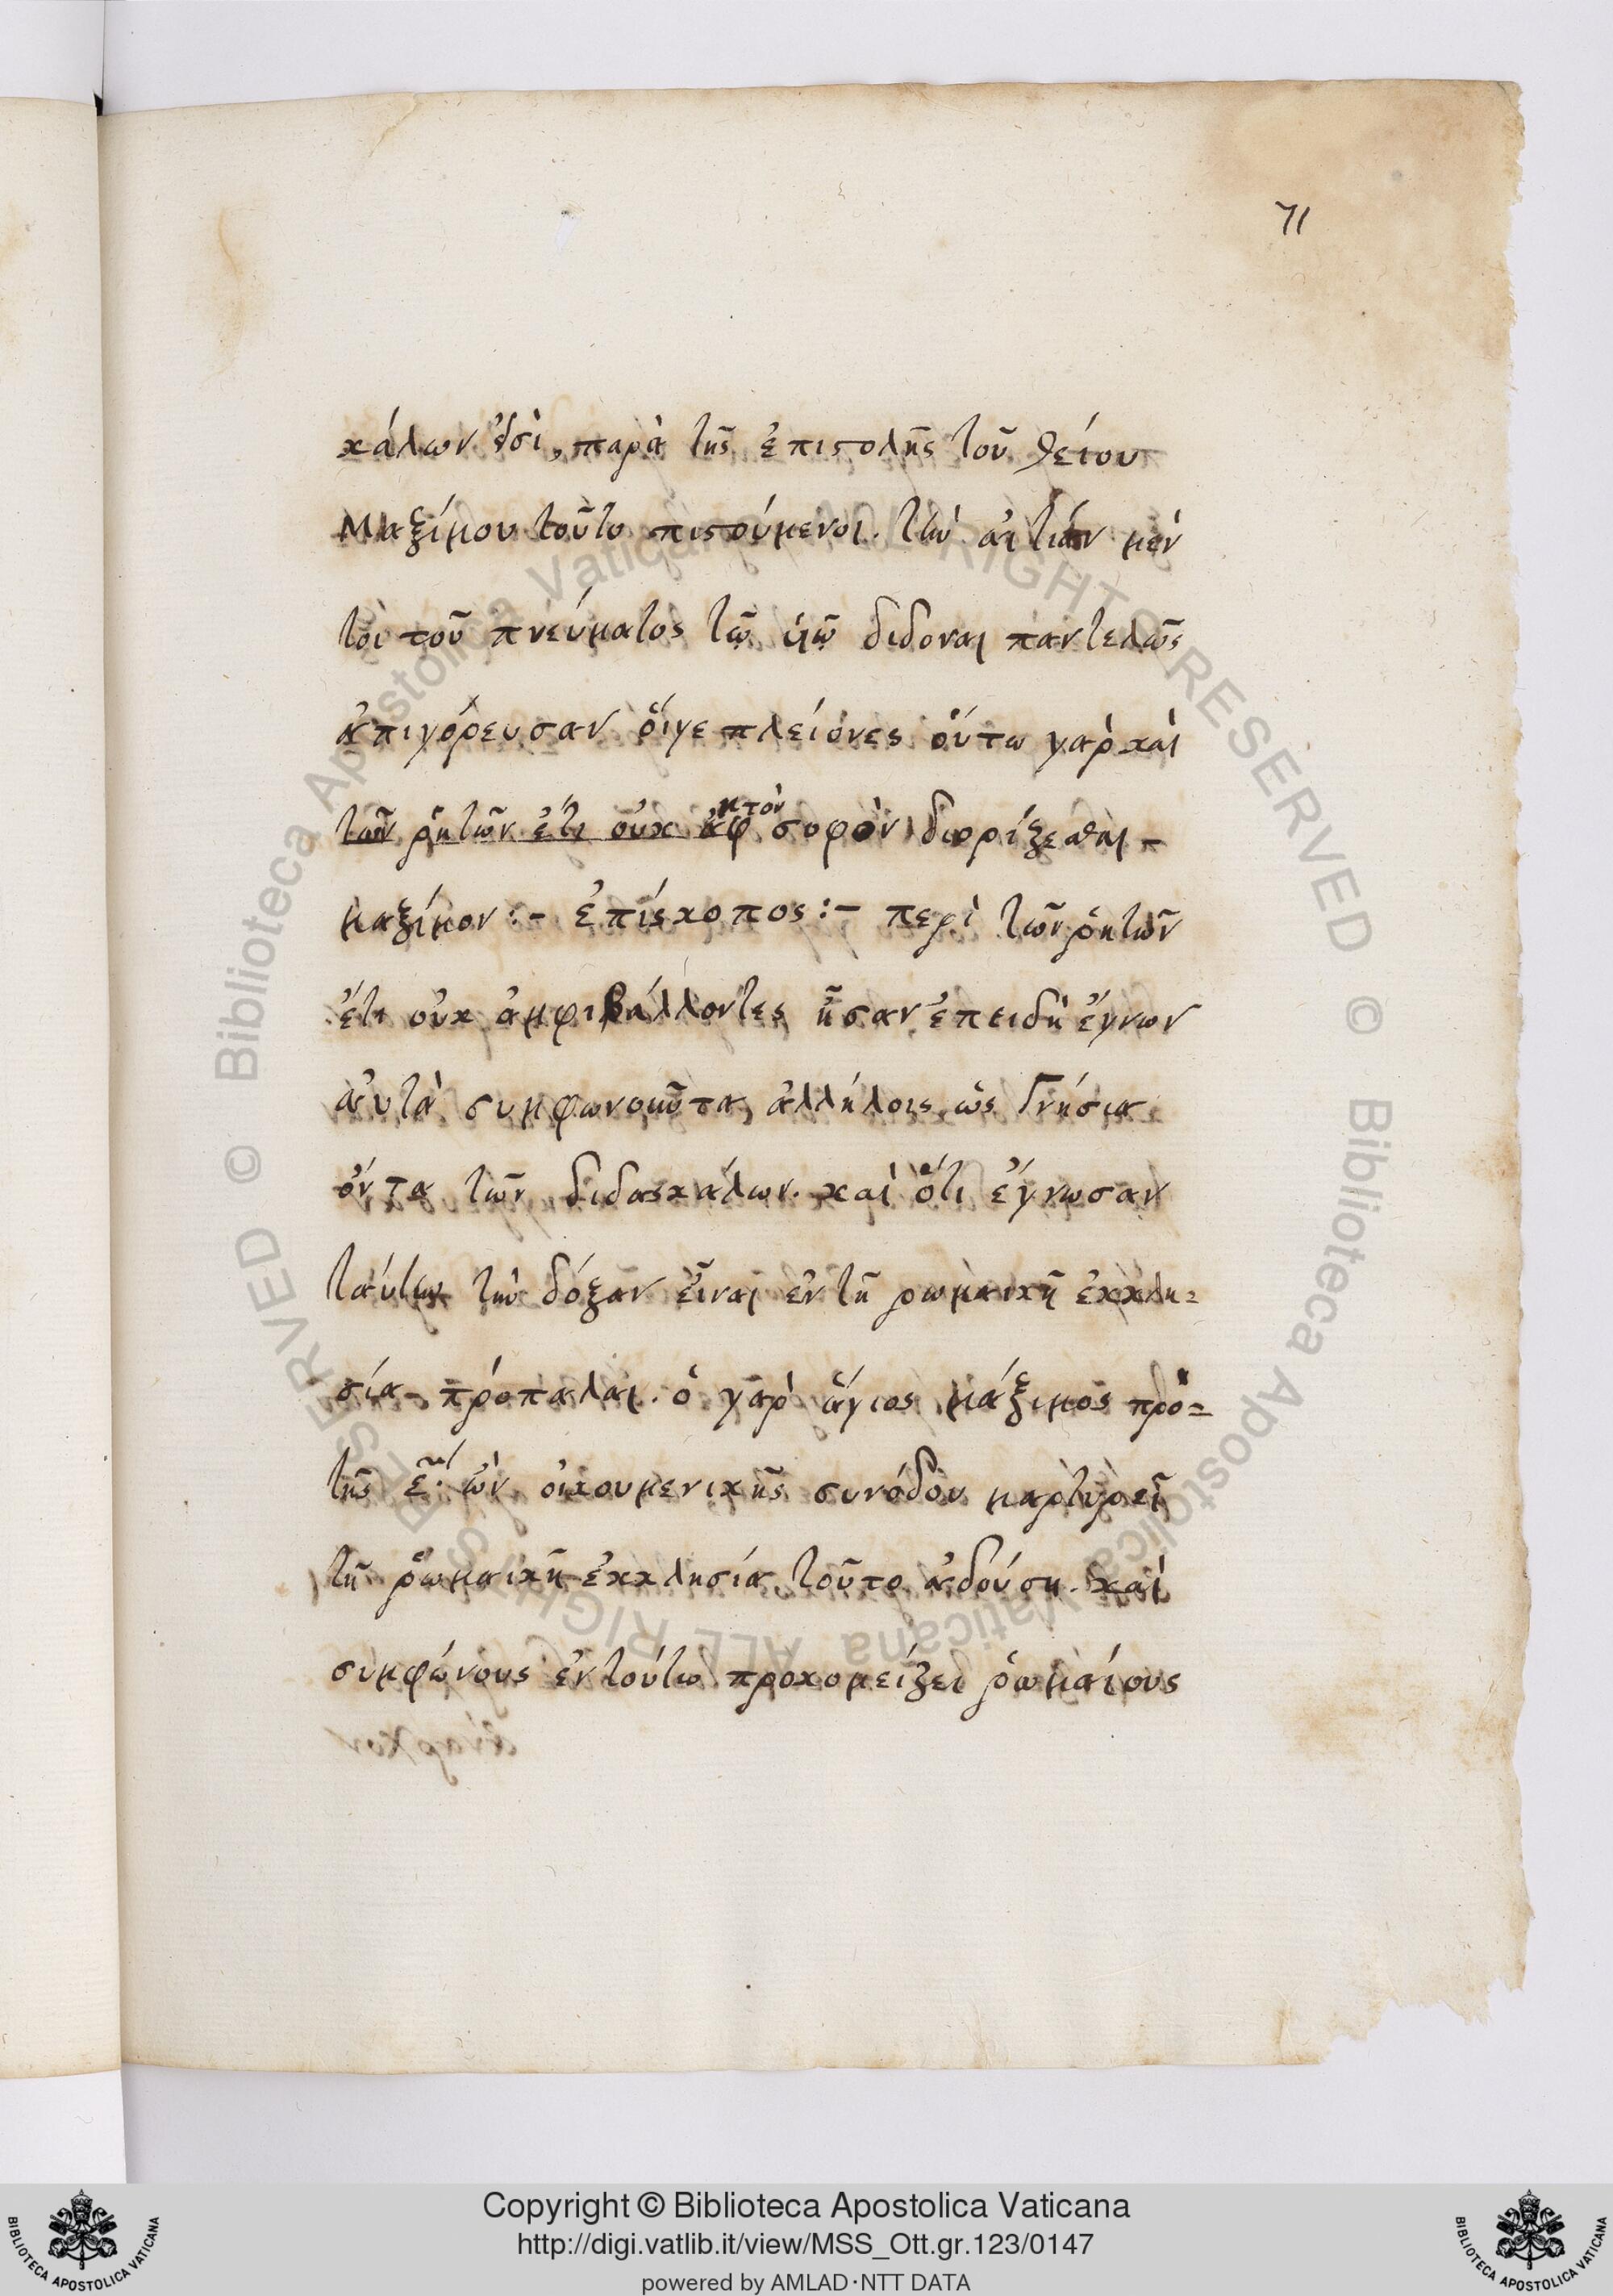 71
κάλων εἰσὶ, παρὰ τῆς ἐπιστολῆς τοῦ θείου
Μαξίμου τοῦτο πιστούμενοι. τὴν αἰτίαν μέν
τοι τοῦ πνεύματος τῷ υἱῷ διδοναι παντελῶς
ἀπιγόρευσαν οἵγε πλείονες οὕτω γὰρ καὶ
τῶν ῥητῶν ἔτι οὐκ ἀφ τὸν σοφὸν διορίζεσθαι -
μαξίμον :- ἐπίσκοπος :- περὶ τῶν ῥητῶν
ἔτι οὐκ ἀμφιβάλλοντες ἦσαν ἐπειδὴ ἔγνων
ἀυτὰ συμφωνοῦντα, ἀλλήλοις, ὡς Γνήσια
ὄντα τῶν διδασκάλων. καὶ ὅτι ἔγνωσαν
ταύτην τὴν δόξαν εἶναι ἐν τῆ ρωμαικῆ ἐκκλη=
σία πρόπαλαι. ὁ γὰρ ἅγιος μάξιμος πρὸ=
τῆς ὢν οἰκουμενικῆς συνόδου μαρτυρεῖ
τῆ ῥωμαικῆ ἐκκλησία τοῦτο ἀδούση. καὶ
συμφώνους ἐν τούτω προκομείζει ῥωμαίους
Copyright © Biblioteca Apostolica Vaticana
http://digi.vatlib.it/view/MSS_Ott.gr.123/0147
powered by AMLAD·NTT DATA
BIBLIOTECA APOSTOLICA VATICANA
BIBLIOTECA APOSTOLICA VATICANA
© Biblioteca Apostolica Vaticana ALL RIGHTS RESERVED
© Biblioteca Apostolica Vaticana ALL RIGHTS RESERVED